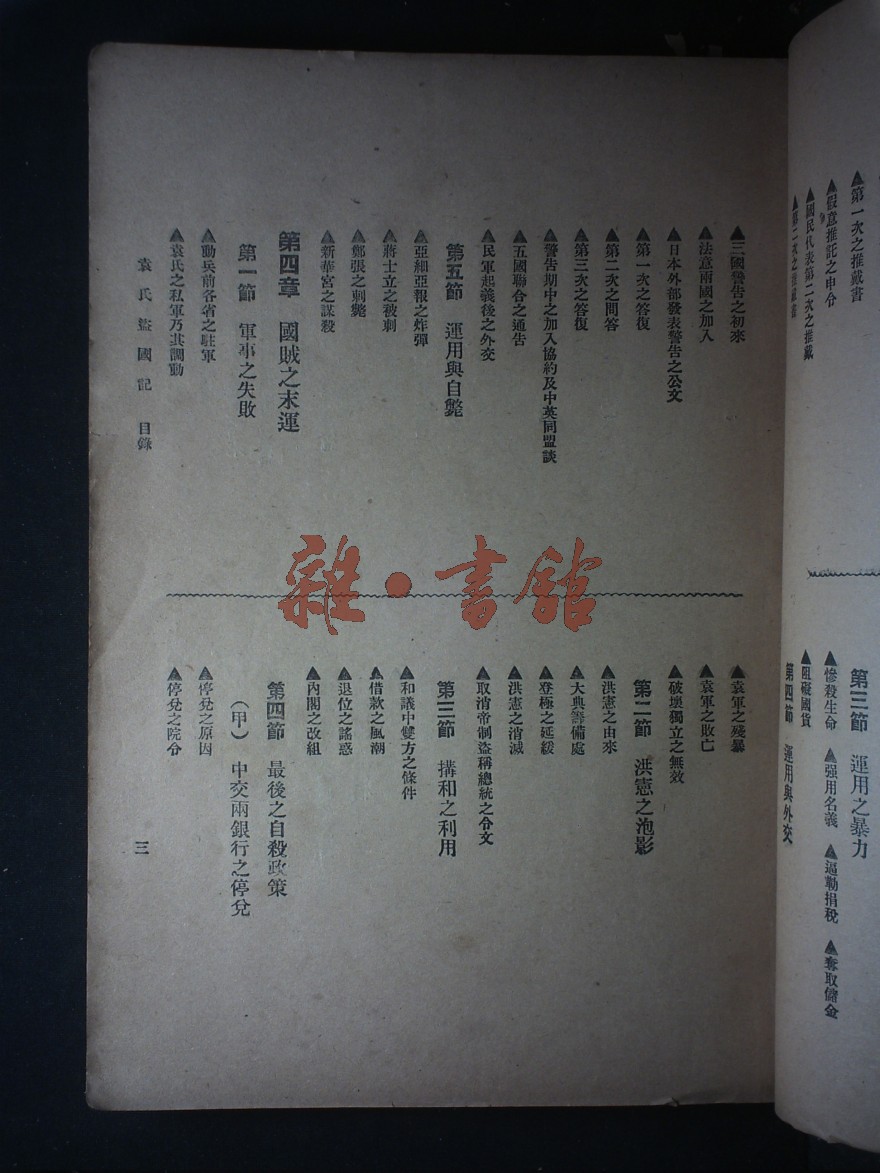 ▲第一次之推戴書
▲假意推託之申令
▲國民代表第二次之推戴
第三節　運用之暴力
▲慘殺生命　▲强用名義　▲逼勒捐稅　▲奪取儲金
▲阻礙國貨
第四節　運用與外交
▲三國警告之初來
▲法意兩國之加入
▲日本外部發表警告之公文
▲第一次之答復
▲第二次之問答
▲第三次之答復
▲警告期中之加入協約及中英同盟談
▲五國聯合之通告
▲民軍起義後之外交
第五節　運用與自斃
▲亞細亞報之炸彈
▲蔣士立之被刺
▲鄭張之刺斃
▲新華宮之謀殺
第四章　國賊之末運
第一節　軍事之失敗
▲動兵前各省之駐軍
▲袁氏之私軍乃其調動
▲袁軍之殘暴
▲袁軍之敗亡
▲破壞獨立之無效
第二節　洪憲之泡影
▲洪憲之由來
▲大典籌備處
▲登極之延緩
▲洪憲之消滅
▲取消帝制盜稱總統之令文
第三節　搆和之利用
▲和議中雙方之條件
▲借款之風潮
▲退位之謠惑
▲內閣之改組
第四節　最後之自殺政策
（甲）中交兩銀行之停兌
▲停兌之原因
▲停兌之院令
袁氏盜國記　目錄
三
雜・書館